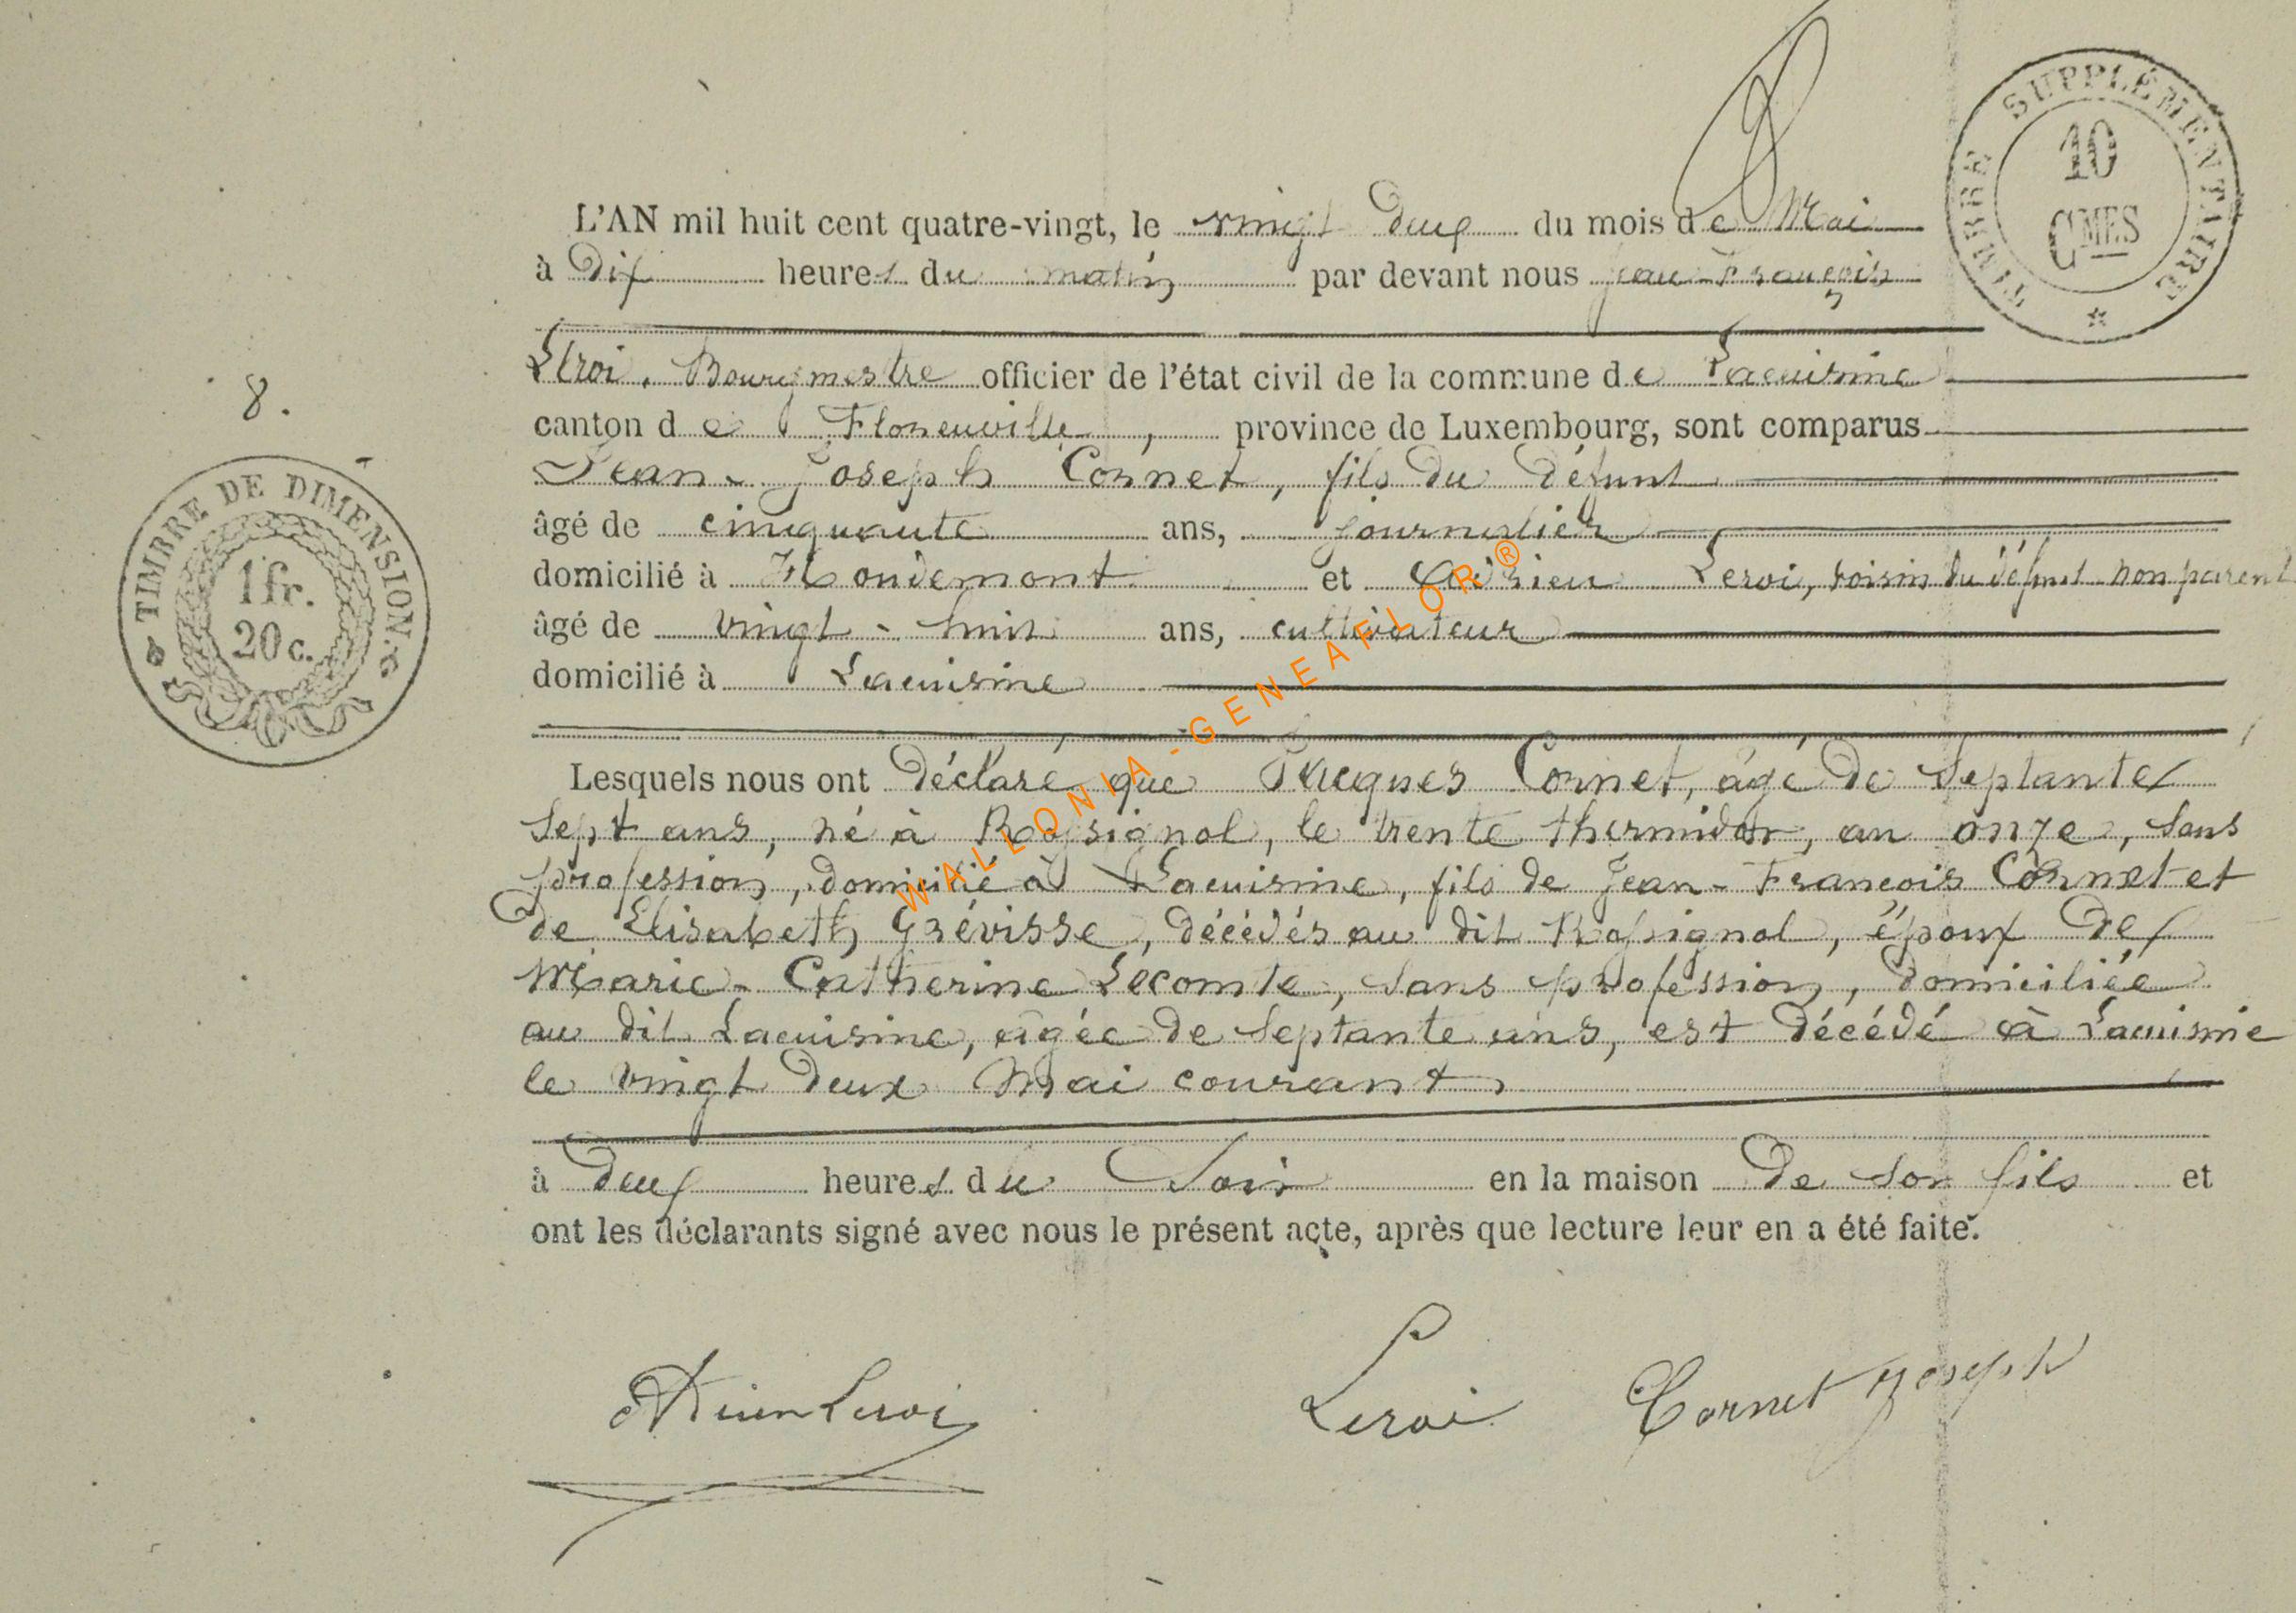 TIMBRE SUPPLÉMENTAIRE
10
CMES
L'AN mil huit cent quatre-vingt, le vingt deux du mois de Mai
à Dix heures du matin par devant nous Jean-François
Leroi, Bourgmestre officier de l'état civil de la commune de Lacuisine
8.
canton de Florenville, province de Luxembourg, sont comparus
Jean-Joseph Cornet, fils du défunt
TIMBRE DE DIMENSION.
1 fr.
20 c.
âgé de cinquante ans, journalier
domicilié à Hondemont et Adrien Leroi, voisin du défunt non parent
âgé de vingt-huit ans, cultivateur
domicilié à Lacuisine
Lesquels nous ont Déclaré que Jacques Cornet, âgé de Septante
Sept ans, né à Rossignol, le trente thermidor, an onze, sans
profession, domicilié à Lacuisine, fils de Jean-François Cornet et
de Elisabeth Grévisse, décédés au dit Rossignol, époux de
Marie-Catherine Lecomte, sans profession, domiciliée
au dit Lacuisine, âgée de Septante ans, est décédé à Lacuisine
le vingt deux Mai courant
à deux heures du Soir en la maison de son fils et
ont les déclarants signé avec nous le présent acte, après que lecture leur en a été faite.
Adrien Leroi Leroi Cornet Joseph
WALLONIA-GENEAFLOR®